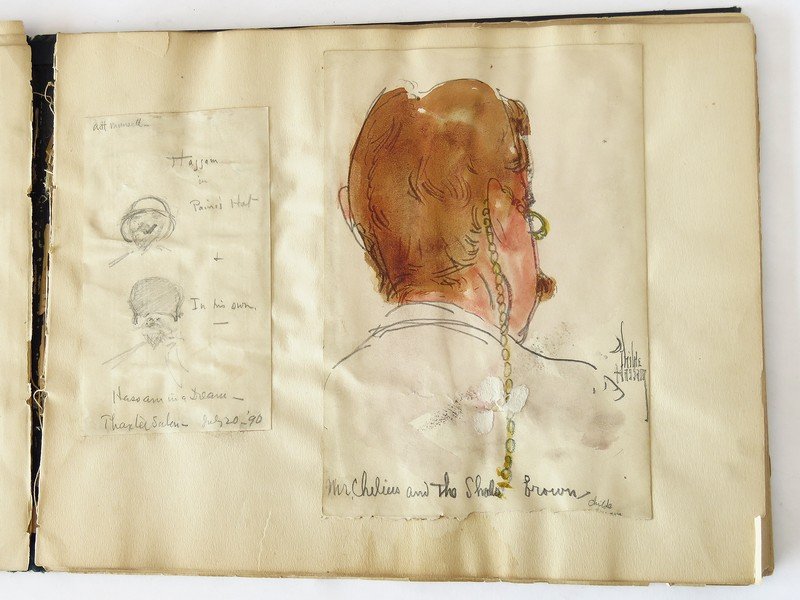 Hassam
in
Paine's Hat
+
In his own.
Hassam in a Dream—
Thaxter Salon— July 20—'90
Childe
Hassam
Mr. Chelius and the Shoals brown
Childe